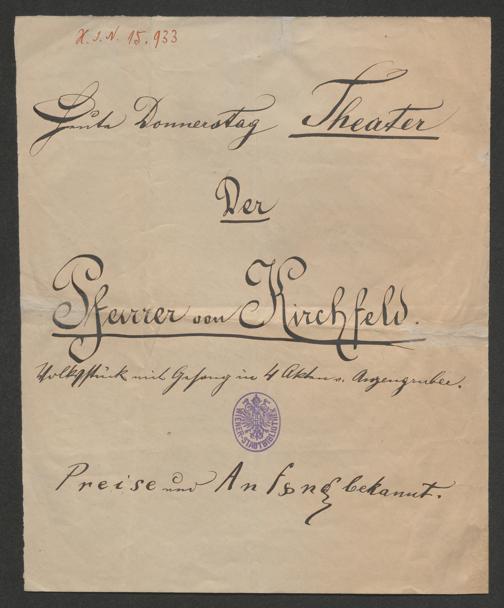 H.I.N. 15.933
Heute Donnerstag Theater
Der
Pfarrer von Kirchfeld.
Volksstück mit Gesang in 4 Akten v. Anzengruber.
WIENER-STADTBIBLIOTHEK
Preise und Anfang bekannt.